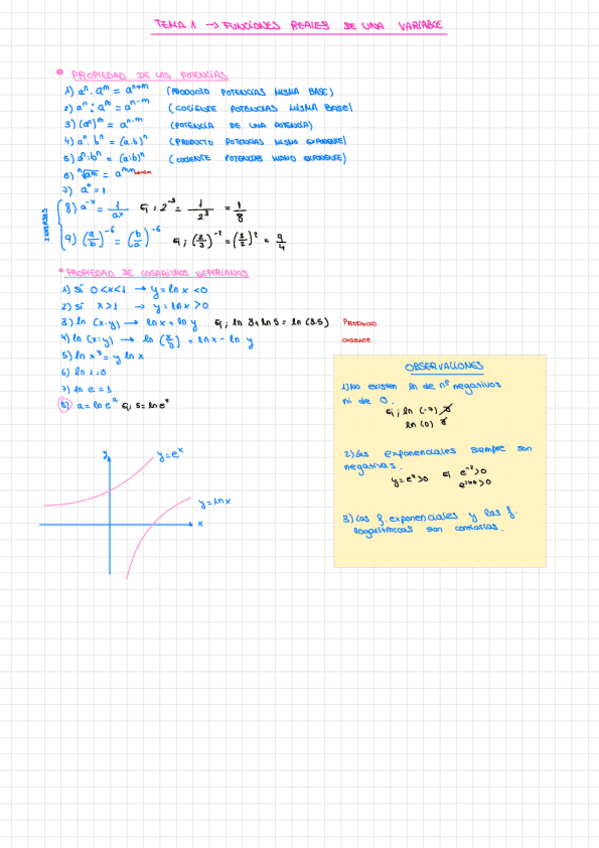 TEMA 1 → FUNCIONES REALES DE UNA VARIABLE
• PROPIEDAD DE LAS POTENCIAS
1) aⁿ · aᵐ = aⁿ⁺ᵐ (PRODUCTO POTENCIAS MISMA BASE)
2) aⁿ : aᵐ = aⁿ⁻ᵐ (COCIENTE POTENCIAS MISMA BASE)
3) (aⁿ)ᵐ = aⁿ·ᵐ (POTENCIA DE UNA POTENCIA)
4) aⁿ · bⁿ = (a.b)ⁿ (PRODUCTO POTENCIAS MISMO EXPONENTE)
5) aⁿ : bⁿ = (a:b)ⁿ (COCIENTE POTENCIAS MISMO EXPONENTE)
6) ⁿ√aᵐ =
7) a⁰ = 1
INVERSAS
8) a⁻ˣ = 1/aˣ Ej; 2⁻³ = 1/2³ = 1/8
9) (a/b)⁻⁶ = (b/a)⁻⁶ Ej; (2/3)⁻² = (3/2)² = 9/4
• PROPIEDAD DE LOGARITMOS NEPERIANOS
1) Si 0<x<1 → y = ln x <0
2) Si x>1 → y = ln x >0
3) ln (x·y) → ln x + ln y Ej; ln 3 + ln 5 = ln (3.5) PRODUCTO
4) ln (x:y) → ln (x/y) = ln x - ln y COCIENTE
5) ln xʸ = y ln x
6) ln 1=0
7) ln e = 1
8) a = ln eᵃ Ej; 5 = ln e⁵
OBSERVACIONES
1) No existen ln de nº negativos
ni de 0.
Ej; ln (-7) ∄
ln (0) ∄
2) Las exponenciales siempre son
negativas.
y = eˣ >0 Ej e⁻²>0
e¹⁰⁰>0
3) Las f. exponenciales y las f.
logarítmicas son contrarias.
y
y = eˣ
y = ln x
x